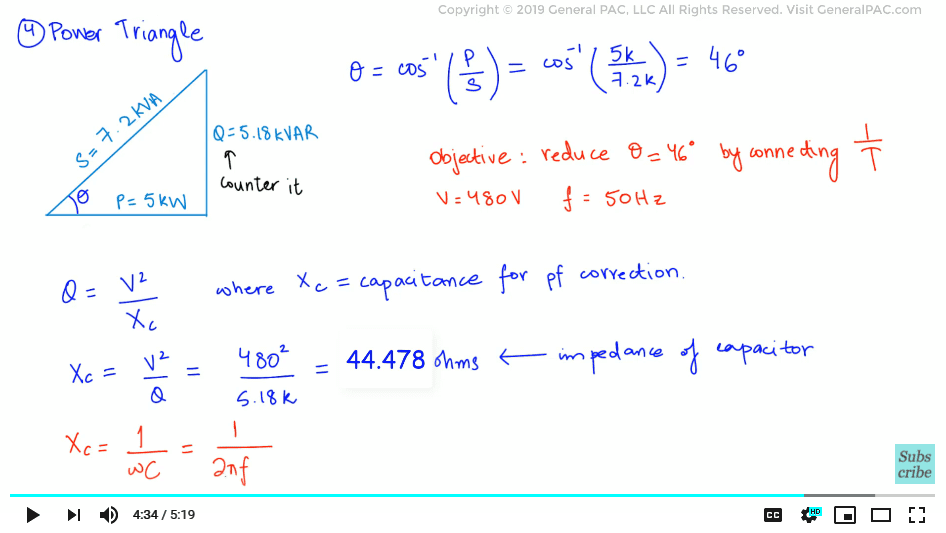 Copyright © 2019 General PAC, LLC All Rights Reserved. Visit GeneralPAC.com
④ Power Triangle
θ = cos⁻¹ (P/S) = cos⁻¹ (5k/7.2k) = 46°
S = 7.2 KVA
Q = 5.18 KVAR
↑
counter it
θ
P = 5 KW
Objective : reduce θ = 46° by connecting ⊥/T
V = 480 V f = 50 Hz
Q = V²/Xc where Xc = capacitance for pf correction.
Xc = V²/Q = 480²/5.18k = 44.478 ohms ← impedance of capacitor
Xc = 1/ωC = 1/2πf
Subs
cribe
4:34 / 5:19
CC
HD